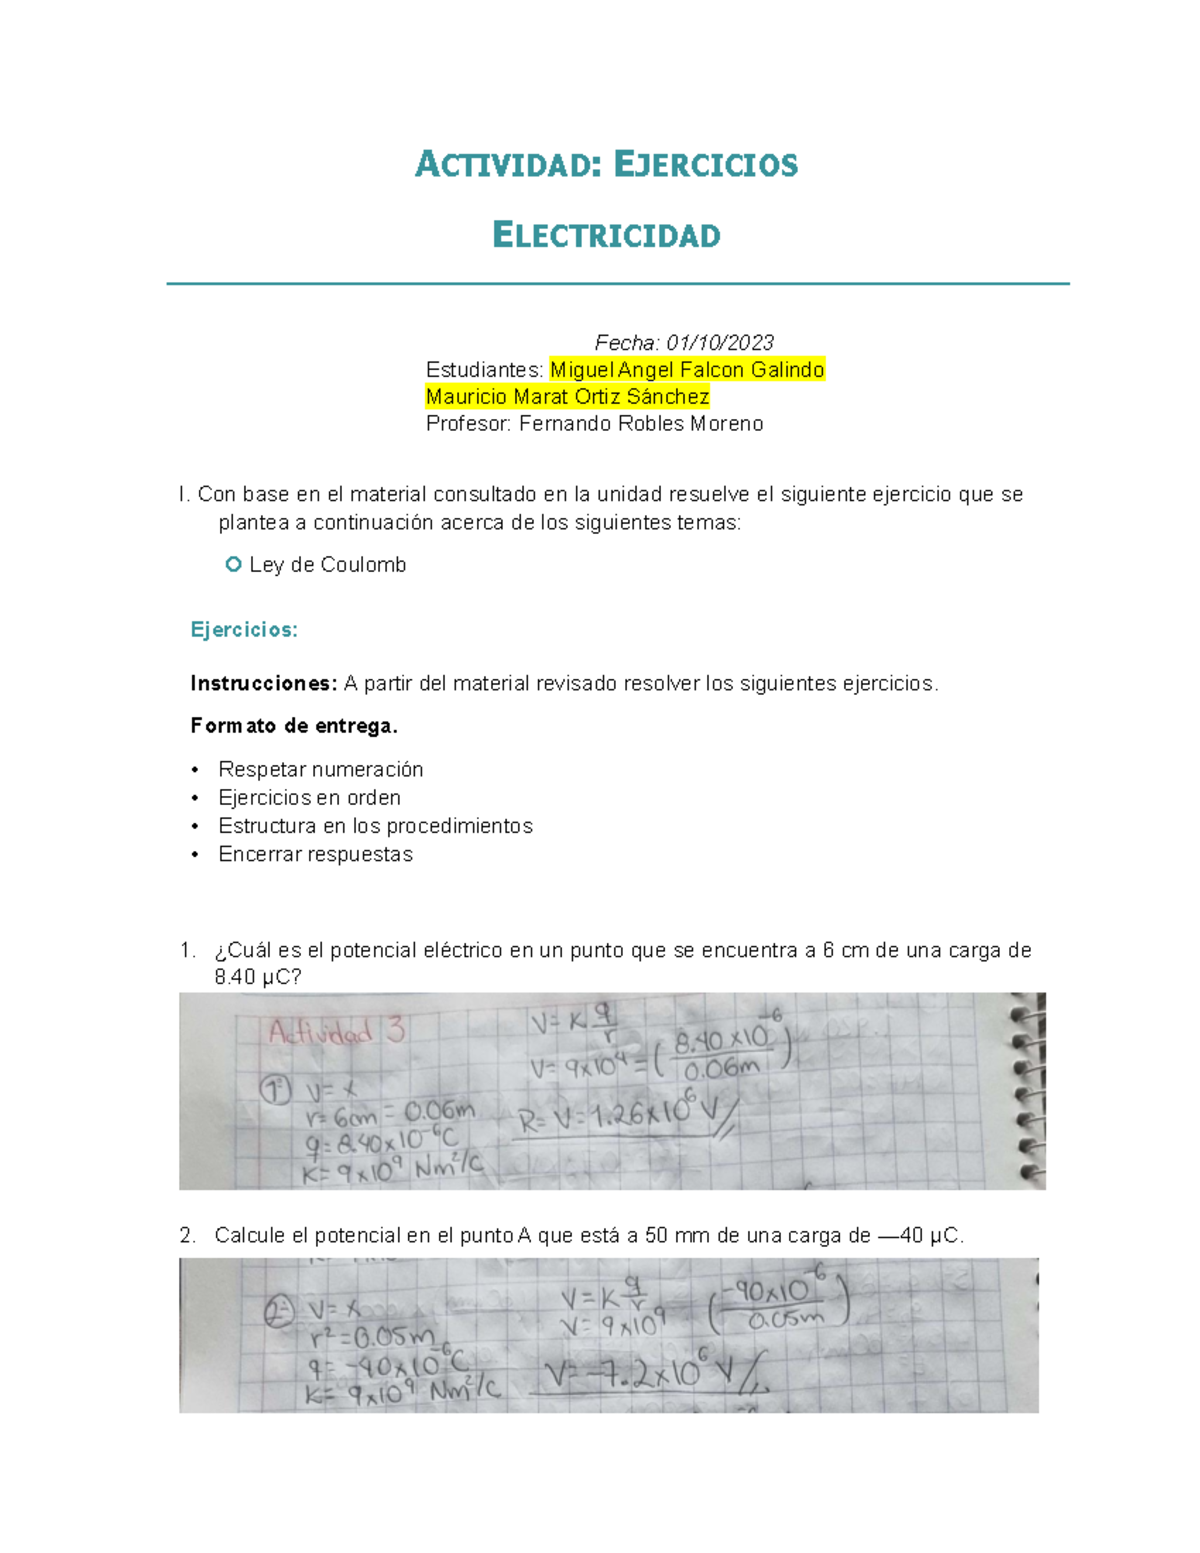 ACTIVIDAD: EJERCICIOS
ELECTRICIDAD
Fecha: 01/10/2023
Estudiantes: Miguel Angel Falcon Galindo
Mauricio Marat Ortiz Sánchez
Profesor: Fernando Robles Moreno
I. Con base en el material consultado en la unidad resuelve el siguiente ejercicio que se
plantea a continuación acerca de los siguientes temas:
Ley de Coulomb
Ejercicios:
Instrucciones: A partir del material revisado resolver los siguientes ejercicios.
Formato de entrega.
• Respetar numeración
• Ejercicios en orden
• Estructura en los procedimientos
• Encerrar respuestas
1. ¿Cuál es el potencial eléctrico en un punto que se encuentra a 6 cm de una carga de
8.40 µC?
Actividad 3
V= K q/r
V= 9x10⁹ = (8.40x10⁻⁶/0.06m)
1= V= x
r= 6cm = 0.06m
q= 8.40x10⁻⁶C
K= 9x10⁹ Nm²/C
R= V= 1.26x10⁶ V
2. Calcule el potencial en el punto A que está a 50 mm de una carga de —40 µC.
2= V= x
r² = 0.05m
q= -40x10⁻⁶C
K= 9x10⁹ Nm²/C
V= K q/r
V= 9x10⁹ (-40x10⁻⁶/0.05m)
V= -7.2x10⁶ V